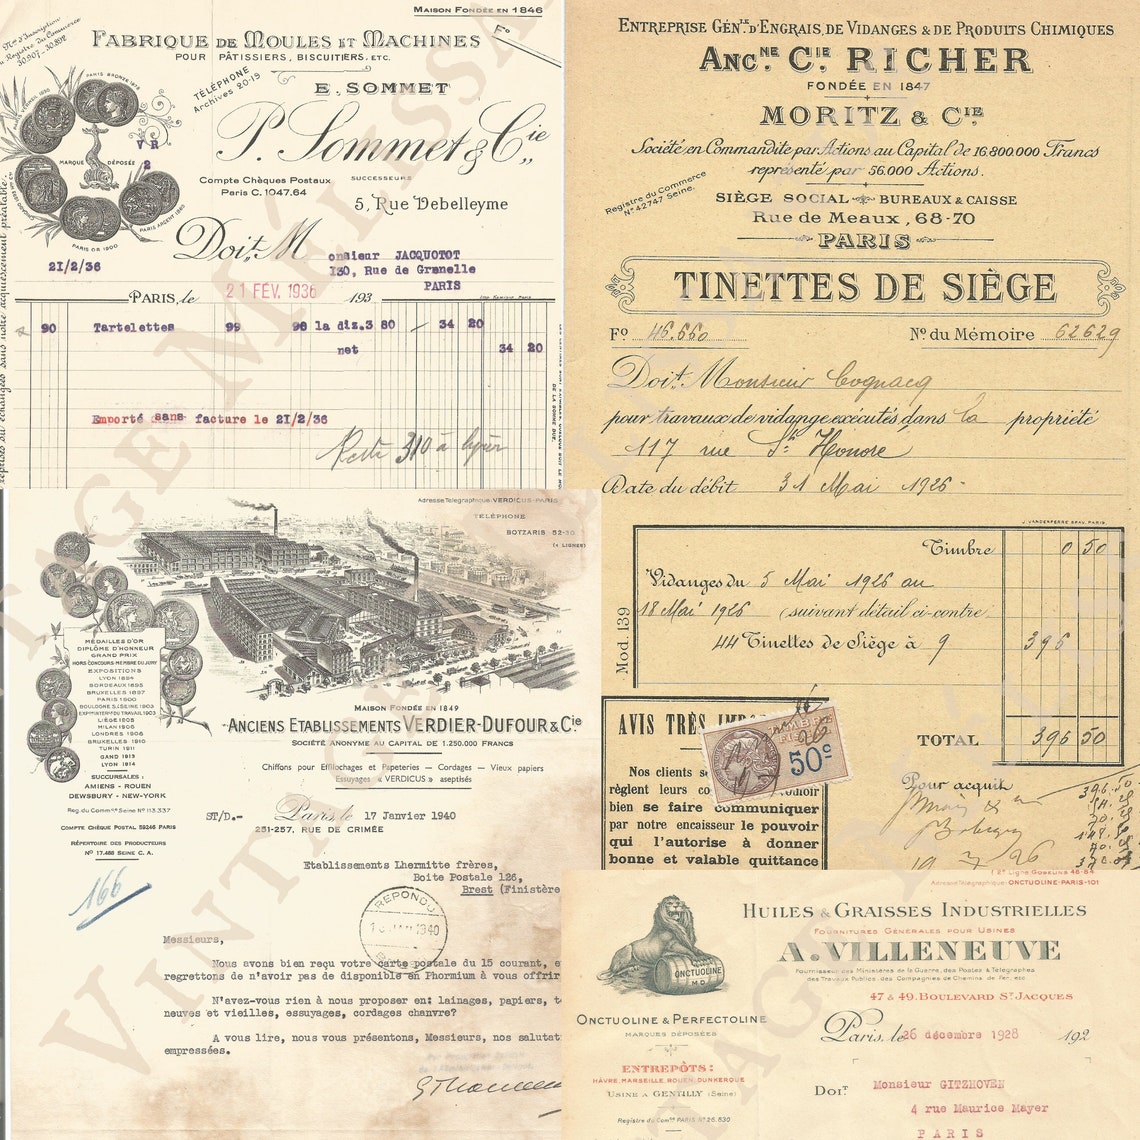 MAISON FONDÉE EN 1846
Nos d'Inscription
au Registre du Commerce
30.907 - 30.892
Fo
FABRIQUE DE MOULES ET MACHINES
POUR PÂTISSIERS, BISCUITIERS, ETC.
TÉLÉPHONE
Archives 20-19
E. SOMMET
P. Sommet & Cie
SUCCESSEURS
Compte Chèques Postaux
Paris C. 1047.64
5, Rue Debelleyme
PARIS BRONZE 1878
MARQUE DÉPOSÉE
PARIS ARGENT 1889
PARIS OR 1900
V R
2
Doit M onsieur JACQUOTOT
130, Rue de Grenelle
PARIS
21/2/36
PARIS, le 21 FÉV. 1936 193
90 Tartelettes 99 98 la diz.3 80 — 34 20
net 34 20
Emporté sans facture le 21/2/36
Reste 310 à
ENTREPRISE GÉNLE D'ENGRAIS, DE VIDANGES & DE PRODUITS CHIMIQUES
ANCNE CIE RICHER
FONDÉE EN 1847
MORITZ & CIE
Société en Commandite par Actions au Capital de 16.800.000 Francs
représenté par 56.000 Actions.
Registre du Commerce
No 42747 Seine.
SIÈGE SOCIAL BUREAUX & CAISSE
Rue de Meaux, 68-70
PARIS
TINETTES DE SIÈGE
Fo 46.660 No du Mémoire 62629
Doit Monsieur Cognacq
pour travaux de vidange exécutés dans la propriété
117 rue St Honore
Date du débit 31 Mai 1926
J. VANDENFERRE BEAU, PARIS
Timbre 0 50
Vidanges du 5 Mai 1926 au
18 Mai 1926 (suivant détail ci-contre
44 Tinettes de Siège à 9 396
Mod. 139
TOTAL 396 50
AVIS TRÈS
50c
Nos clients
règlent leurs
bien se faire communiquer
par notre encaisseur le pouvoir
qui l'autorise à donner
bonne et valable quittance
Pour acquit
396.50
Adresse Télégraphique: VERDICUS-PARIS
TÉLÉPHONE
BOTZARIS 52-30
(4 LIGNES)
MÉDAILLES D'OR
DIPLÔME D'HONNEUR
GRAND PRIX
HORS CONCOURS-MEMBRE DU JURY
EXPOSITIONS
LYON 1894
BORDEAUX 1895
BRUXELLES 1897
PARIS 1900
BOULOGNE S/SEINE 1903
EXPON MINTER DU TRAVAIL 1903
LIÈGE 1905
MILAN 1906
LONDRES 1906
BRUXELLES 1910
TURIN 1911
GAND 1913
LYON 1914
SUCCURSALES:
AMIENS - ROUEN
DEWSBURY - NEW-YORK
Reg. du Commce Seine No 113.337
COMPTE CHÈQUE POSTAL 59246 PARIS
RÉPERTOIRE DES PRODUCTEURS
No 17.466 SEINE C. A.
MAISON FONDÉE EN 1849
ANCIENS ETABLISSEMENTS VERDIER-DUFOUR & Cie
SOCIÉTÉ ANONYME AU CAPITAL DE 1.250.000 FRANCS
Chiffons pour Effilochages et Papeteries — Cordages — Vieux papiers
Essuyages "VERDICUS" aseptisés
ST/D.- Paris le 17 Janvier 1940
251-257, RUE DE CRIMÉE
Etablissements Lhermitte frères,
Boite Postale 126,
Brest (Finistère
166
REPONDU
JAN 1940
Messieurs,
Nous avons bien reçu votre carte postale du 15 courant, e
regrettons de n'avoir pas de disponible en Phormium à vous offrir
N'avez-vous rien à nous proposer en: lainages, papiers, t
neuves et vieilles, essuyages, cordages chanvre?
A vous lire, nous vous présentons, Messieurs, nos salutat
empressées.
(2e Ligne GOBELINS 46-84
Adresse Télégraphique: ONCTUOLINE-PARIS-101
HUILES & GRAISSES INDUSTRIELLES
FOURNITURES GÉNÉRALES POUR USINES
A. VILLENEUVE
Fournisseur des Ministères de la Guerre, des Postes & Télégraphes
des Travaux Publics, des Compagnies de Chemins de Fer, etc.
47 & 49. BOULEVARD ST JACQUES
ONCTUOLINE
M.D
ONCTUOLINE & PERFECTOLINE
MARQUES DÉPOSÉES
ENTREPÔTS:
HÂVRE, MARSEILLE, ROUEN, DUNKERQUE
USINE À GENTILLY (Seine)
Registre du Comce PARIS No 26.830
Paris, le 26 décembre 1928 192
DOIT Monsieur GITZHOVEN
4 rue Maurice Mayer
PARIS